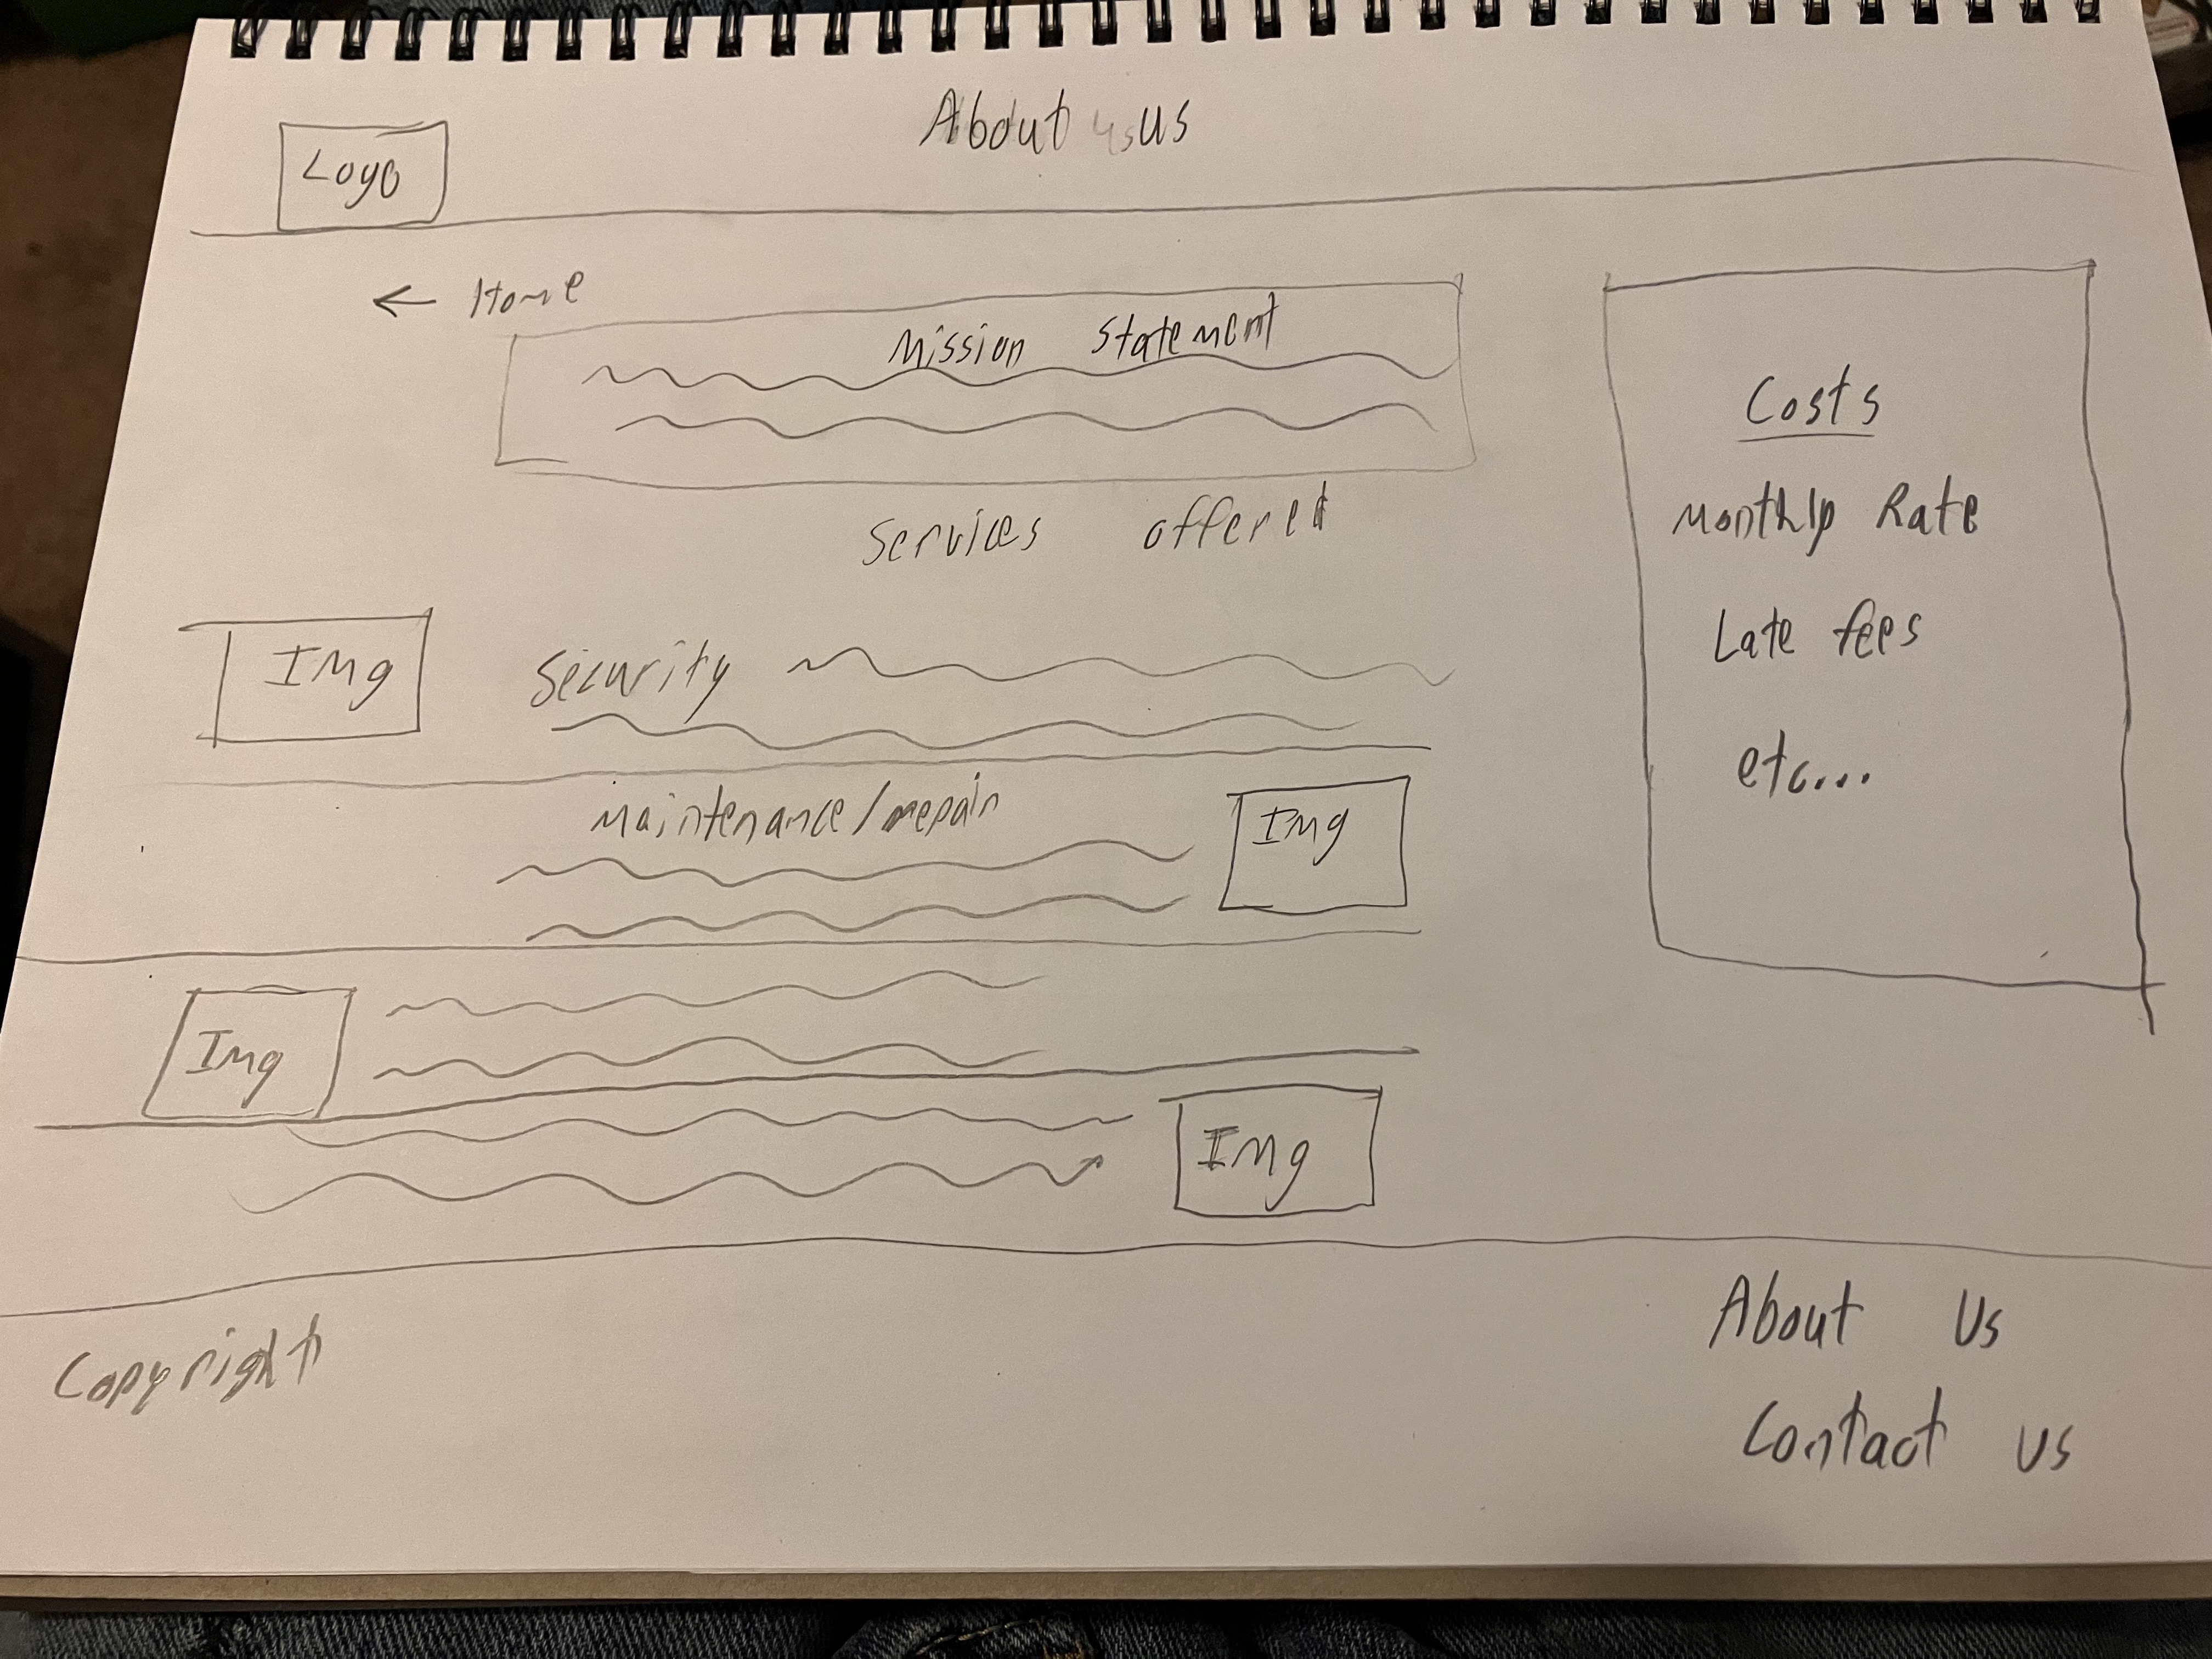 About us
Logo
← Home
Mission Statement
Services offered
Img
Security
Maintenance/repair
Img
Img
Img
Costs
Monthly Rate
Late fees
etc...
Copyright
About Us
Contact us